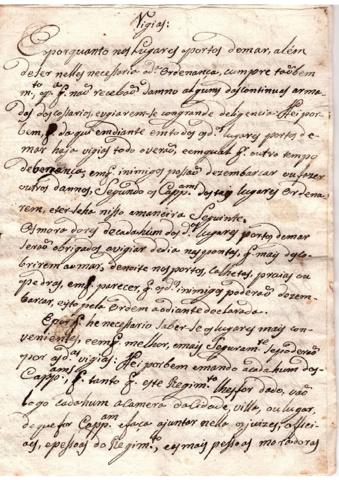 Vigias:
E porquanto nos lugares e portos de mar, além
de ser nelles necessaria a dª Ordenança, cumpre tãobem
mto, pª q̃ não recebão damno alguns dos continuos arma-
dos dos cossarios, e vigiarem-se con grande deligencia: Hei por
bem, q̃ daqui em diante em todos os ds lugares portos de
mar haja vigias todo o verão, e em qualqr outro tempo
de bonança, em q̃ inimigos possão dezembarcar ou fazer
outros damnos, Segundo os Cappams dos taes lugares Ordena-
rem, e ter seha nisso a maneira Seguinte.
Os moradores de cada hum dos ds lugares portos de mar
serão obrigados, a vigiar de dia nas pontas, q̃ mais desco-
brirem ao mar, de noite nos portos, calhetas, praias ou
pedras, em q̃ parecer, q̃ os inimigos poderão dezem-
barcar, e isto pela Ordem ao diante declarada.
E por q̃ he necessario saber se os lugares mais con-
venientes, e em q̃ melhor, e mais Seguramte se poderão
por as ds vigias: Hei por bem e mando a cada hum dos
Cappams q̃ tanto q̃ este Regimto lhes for dado, vão
logo cada hum a Camera da Cidade, villa, ou lugar,
de que for Cappam e faça ajuntar nella os juizes, officia-
aes, e pessoas do Regimto, e as mais pessoas moradoras